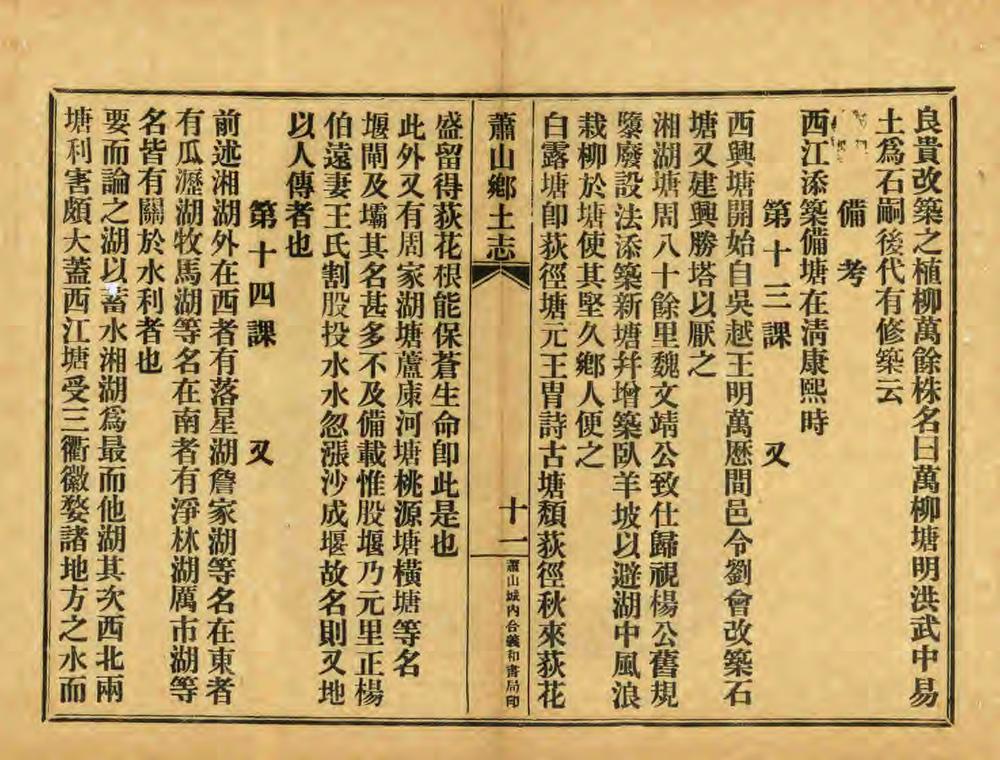 良貴改築之植柳萬餘株名曰萬柳塘明洪武中易
土爲石嗣後代有修築云
備考
西江添築備塘在淸康熙時
第十三課　又
西興塘開始自吳越王明萬歷間邑令劉會改築石
塘又建興勝塔以厭之
湘湖塘周八十餘里魏文靖公致仕歸視楊公舊規
隳廢設法添築新塘幷增築臥羊坡以避湖中風浪
栽柳於塘使其堅久鄕人便之
白露塘卽荻徑塘元王冑詩古塘頹荻徑秋來荻花
蕭山鄕土志
十一
蕭山城內合義和書局印
盛留得荻花根能保蒼生命卽此是也
此外又有周家湖塘蘆康河塘桃源塘橫塘等名
堰閘及壩其名甚多不及備載惟股堰乃元里正楊
伯遠妻王氏割股投水水忽漲沙成堰故名則又地
以人傳者也
第十四課　又
前述湘湖外在西者有落星湖詹家湖等名在東者
有瓜瀝湖牧馬湖等名在南者有淨林湖厲市湖等
名皆有關於水利者也
要而論之湖以蓄水湘湖爲最而他湖其次西北兩
塘利害頗大蓋西江塘受三衢徽婺諸地方之水而